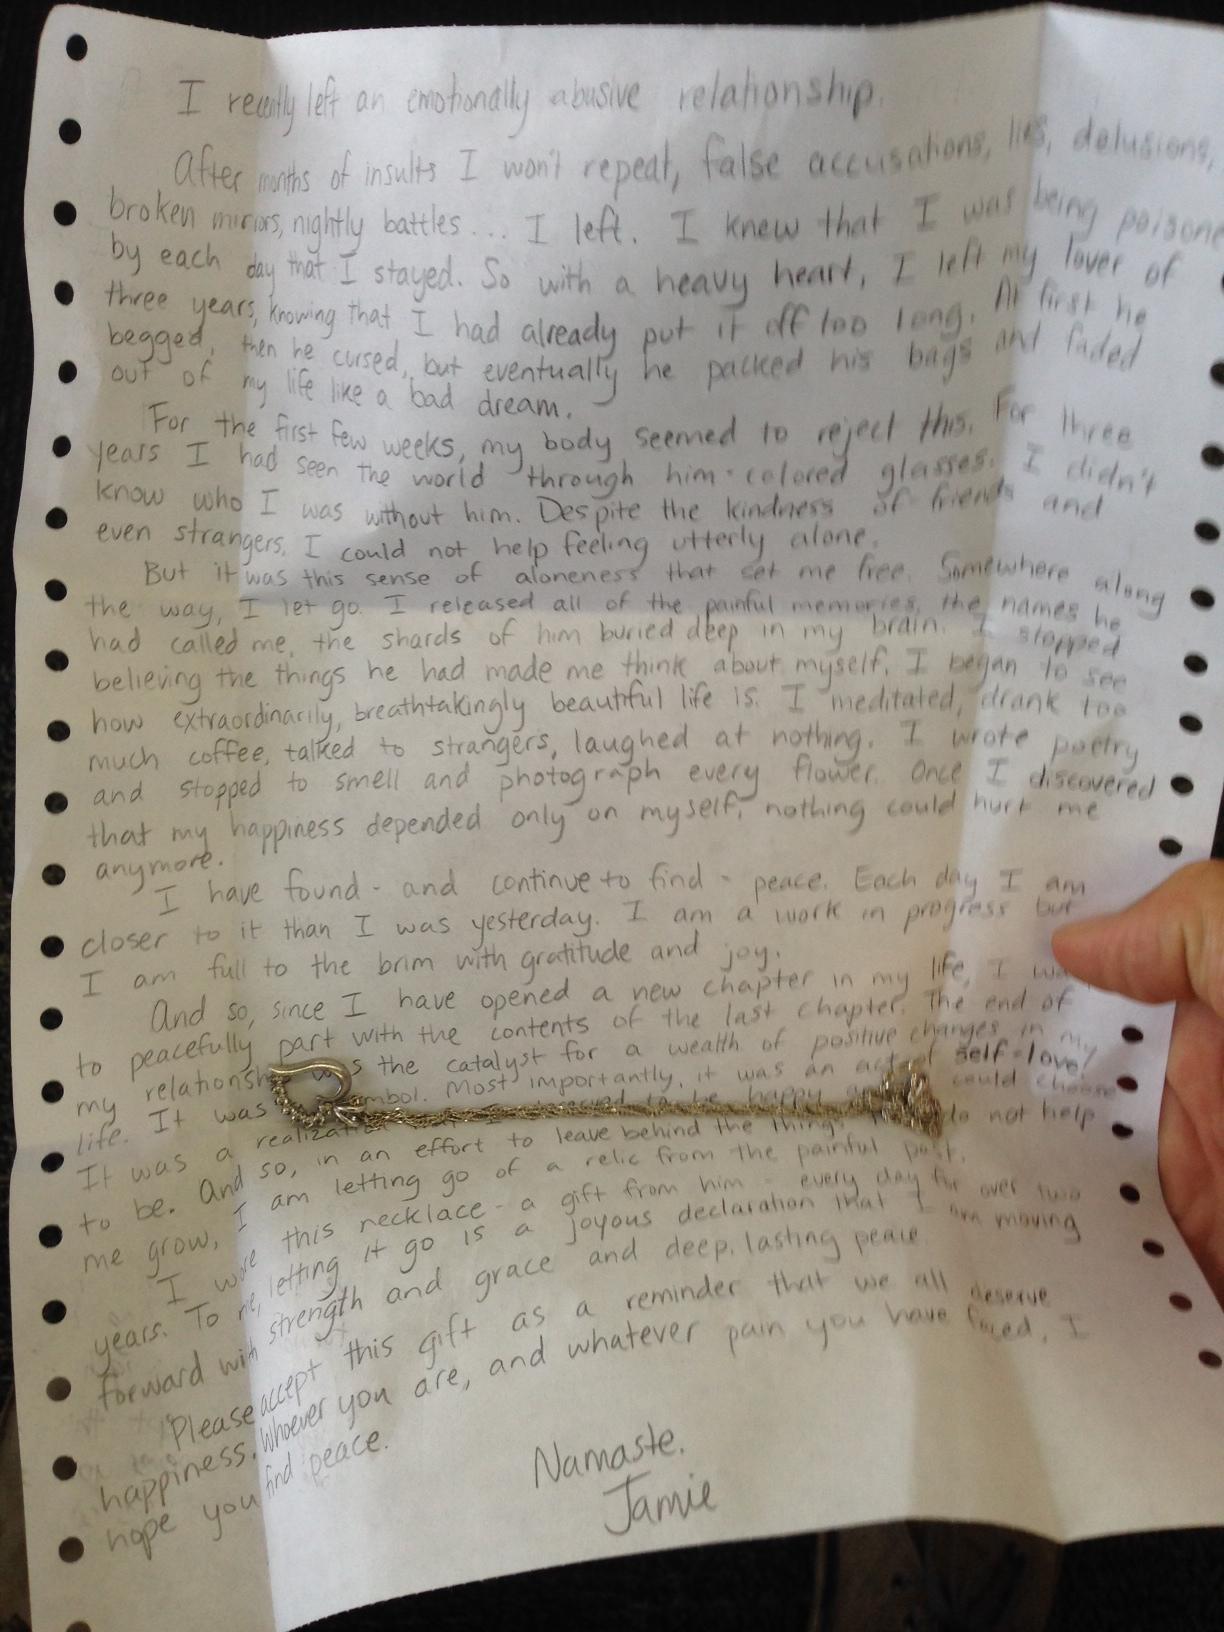 I recently left an emotionally abusive relationship.
After months of insults I won't repeat, false accusations, lies, delusions,
broken mirrors, nightly battles... I left. I knew that I was being poisone
by each day that I stayed. So with a heavy heart, I left my lover of
three years, knowing that I had already put it off too long. At first he
begged, then he cursed, but eventually he packed his bags and faded
out of my life like a bad dream.
For the first few weeks, my body seemed to reject this. For three
years I had seen the world through him-colored glasses. I didn't
know who I was without him. Despite the kindness of friends and
even strangers, I could not help feeling utterly alone.
But it was this sense of aloneness that set me free. Somewhere along
the way, I let go. I released all of the painful memories, the names he
had called me, the shards of him buried deep in my brain. I stopped
believing the things he had made me think about myself. I began to see
how extraordinarily, breathtakingly beautiful life is. I meditated, drank too
much coffee, talked to strangers, laughed at nothing. I wrote poetry
and stopped to smell and photograph every flower. Once I discovered
that my happiness depended only on myself, nothing could hurt me
anymore.
I have found - and continue to find - peace. Each day I am
closer to it than I was yesterday. I am a work in progress but
I am full to the brim with gratitude and joy.
And so, since I have opened a new chapter in my life, I
to peacefully part with the contents of the last chapter. The end of
my relationship was the catalyst for a wealth of positive changes in my
life. It was symbol. Most importantly, it was an act of self-love.
It was a realization that I deserved to be happy could choose
to be. And so, in an effort to leave behind the things do not help
me grow, I am letting go of a relic from the painful past.
I wore this necklace - a gift from him - every day for over two
years. To me, letting it go is a joyous declaration that I am moving
forward with strength and grace and deep, lasting peace.
Please accept this gift as a reminder that we all deserve
happiness. Whoever you are, and whatever pain you have faced, I
hope you find peace.
Namaste.
Jamie